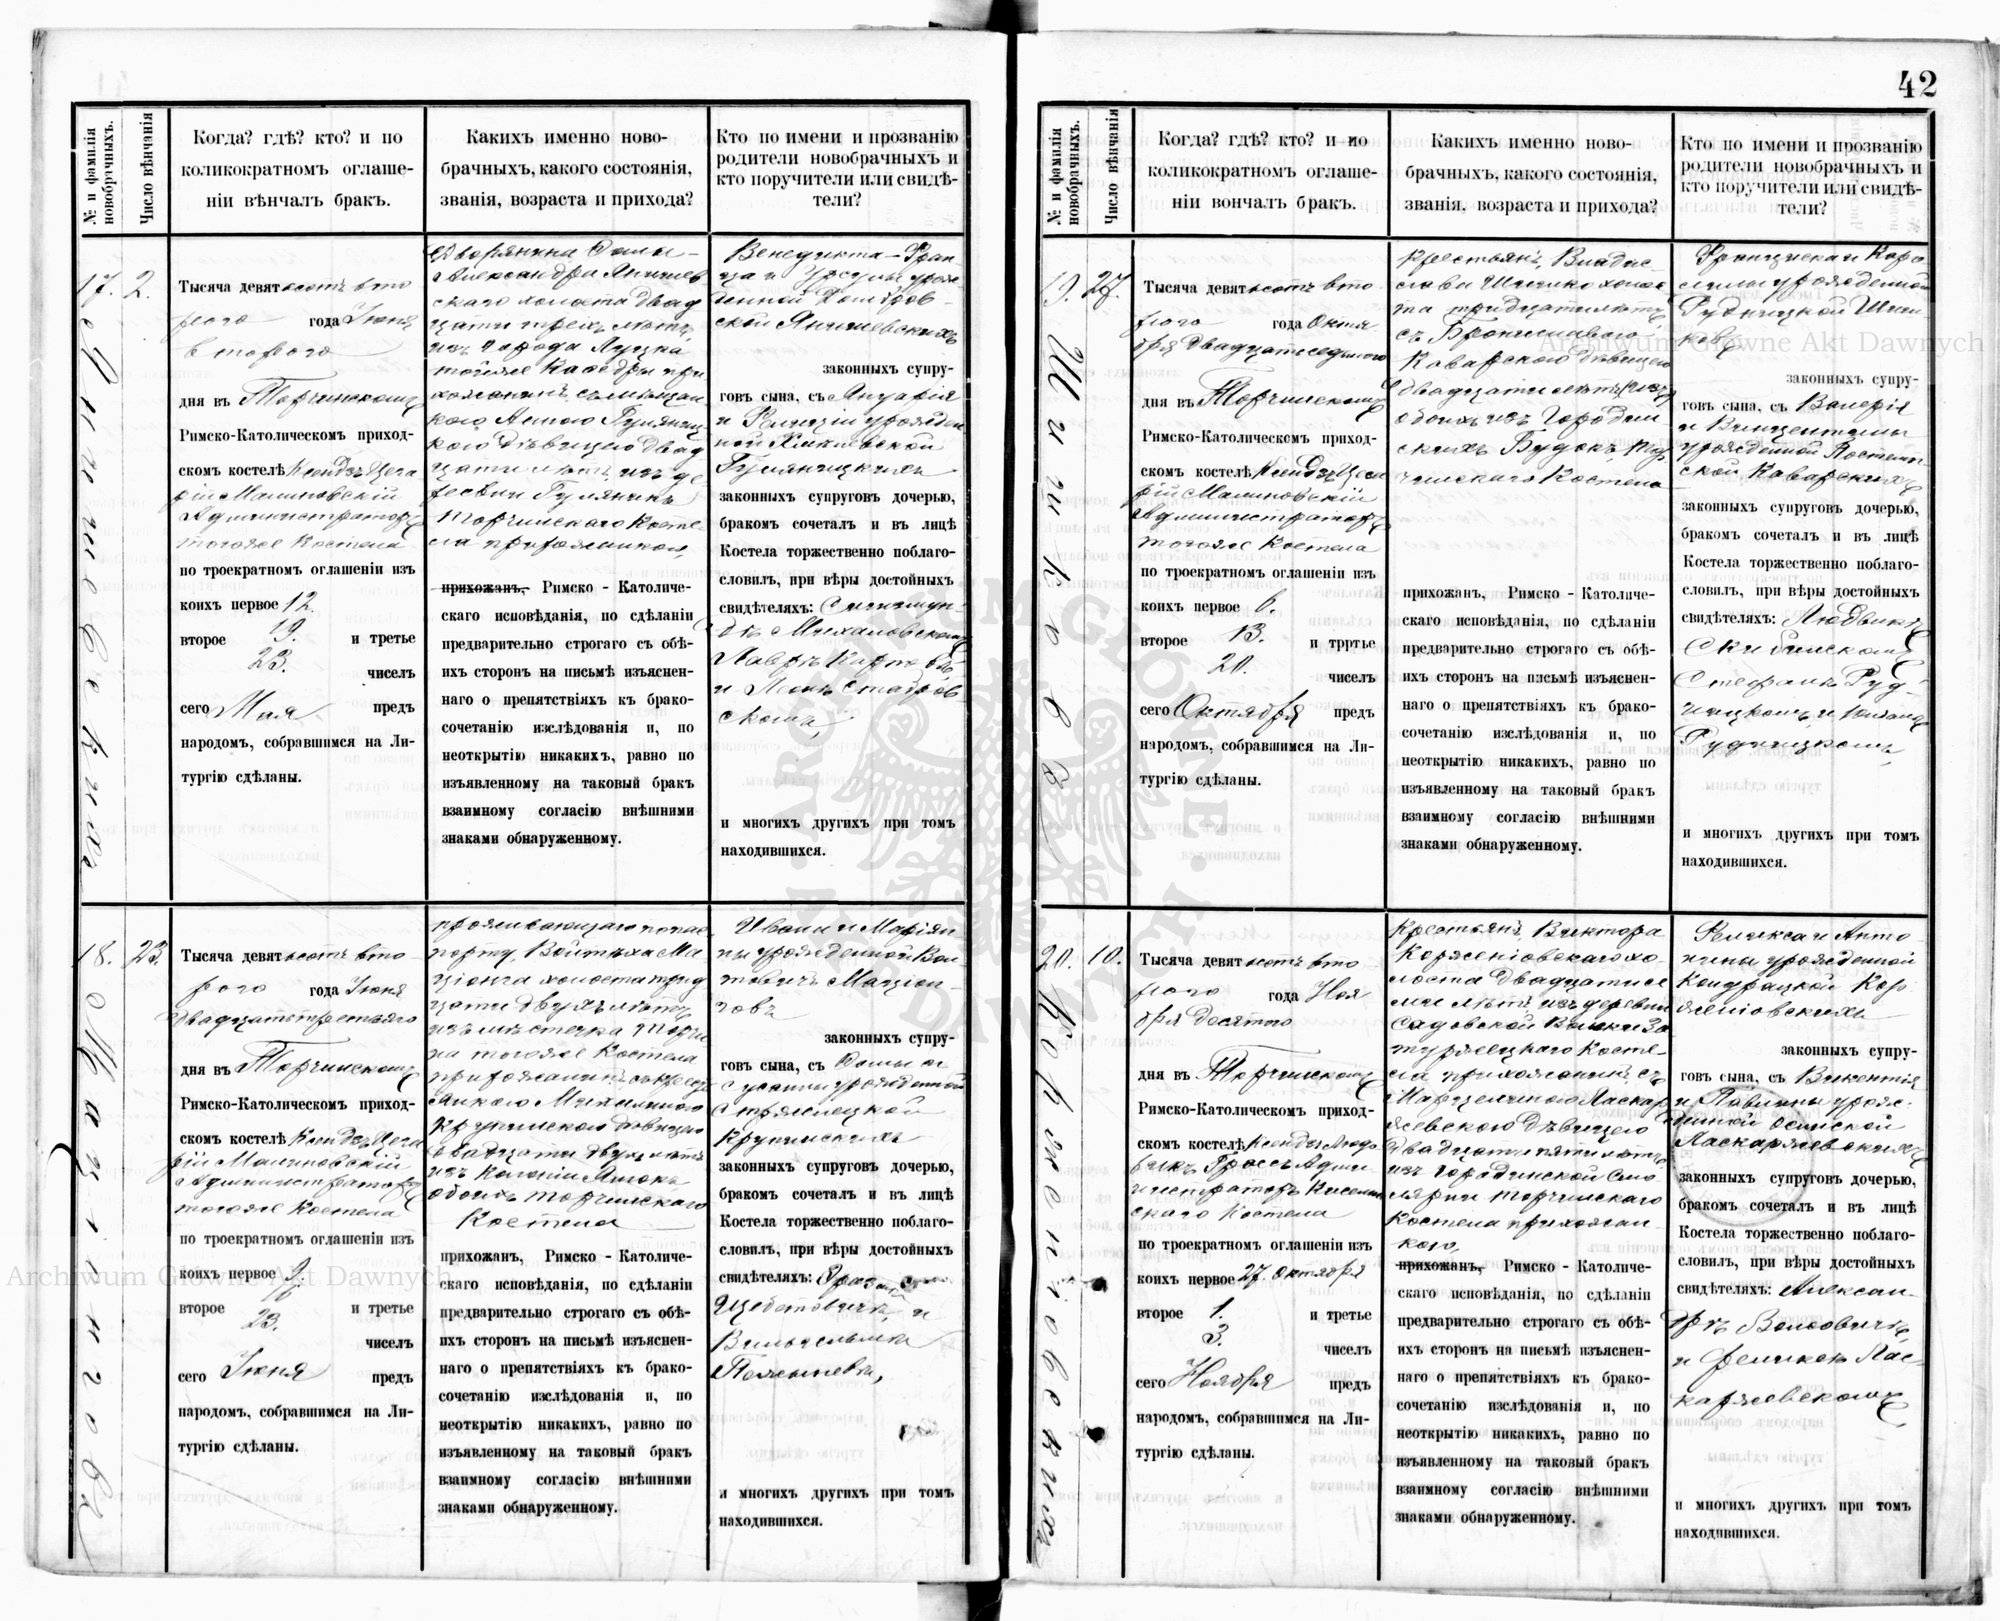 42
№ и фамилія новобрачныхъ.
Число вѣнчанія
Когда? гдѣ? кто? и по
коликократномъ оглаше-
ніи вѣнчалъ бракъ.
Какихъ именно ново-
брачныхъ, какого состоянія,
званія, возраста и прихода?
Кто по имени и прозванію
родители новобрачныхъ и
кто поручители или свидѣ-
тели?
17.
2.
Янишевскихъ
Тысяча девятьсотъ вто
рого года Іюня
второго
дня въ Торчинскомъ
Римско-Католическомъ приход-
скомъ костелѣ Ксендзъ Цеза
рій Малиновскій
Администраторъ
тогоже Костела
по троекратномъ оглашеніи изъ
коихъ первое 12.
второе 19. и третье
23. чиселъ
сего Мая предъ
народомъ, собравшимся на Ли-
тургію сдѣланы.
Дворянина
Александра Янишев
скаго холоста двад
цати трехъ лѣтъ,
изъ города Луцка
тойже Кафедры при
хожанинъ, съ мѣщан
кою Анною Гуляниц
кою дѣвицею двад
цати лѣтъ, изъ де
ревни Гуляникъ
Торчинскаго Косте-
ла прихожанкою,
прихожанъ, Римско - Католиче-
скаго исповѣданія, по сдѣланіи
предварительно строгаго съ обѣ-
ихъ сторонъ на письмѣ изъяснен-
наго о препятствіяхъ къ брако-
сочетанію изслѣдованія и, по
неоткрытію никакихъ, равно по
изъявленному на таковый бракъ
взаимному согласію внѣшними
знаками обнаруженному.
Венедикта - Фран-
ца и Урсулы урож
денной Домбров-
ской Янишевскихъ
законныхъ супру-
говъ сына, съ Януарія
и Фелиціи урожден
ной
Гуляницкихъ
законныхъ супруговъ дочерью,
бракомъ сочеталъ и въ лицѣ
Костела торжественно поблаго-
словилъ, при вѣры достойныхъ
свидѣтеляхъ: Сигизмун-
дѣ Михаловскомъ
Лаврѣ
и
скомъ,
и многихъ другихъ при томъ
находившихся.
18.
23.
Маціонговъ
Тысяча девятьсотъ вто
рого года Іюня
двадцатьтретьяго
дня въ Торчинскомъ
Римско-Католическомъ приход-
скомъ костелѣ Ксендзъ Цеза
рій Малиновскій
Администраторъ
тогоже Костела
по троекратномъ оглашеніи изъ
коихъ первое 9.
второе 16. и третье
23. чиселъ
сего Іюня предъ
народомъ, собравшимся на Ли-
тургію сдѣланы.
проживающаго по пас
порту Войтѣха Ма
ціонга холоста трид
цати двухъ лѣтъ
изъ мѣстечка Торчи
на тогоже Костела
прихожанинъ, съ
Михалиною
Крупинскою дѣвицею
двадцати двухъ лѣтъ
изъ Колоніи
обоихъ Торчинскаго
Костела
прихожанъ, Римско - Католиче-
скаго исповѣданія, по сдѣланіи
предварительно строгаго съ обѣ-
ихъ сторонъ на письмѣ изъяснен-
наго о препятствіяхъ къ брако-
сочетанію изслѣдованія и, по
неоткрытію никакихъ, равно по
изъявленному на таковый бракъ
взаимному согласію внѣшними
знаками обнаруженному.
Ивана и Маріан
ны урожденной Вой
товичъ Маціон-
говъ
законныхъ супру-
говъ сына, съ Фомы и
урожденной
Стржелецкой
Крупинскихъ
законныхъ супруговъ дочерью,
бракомъ сочеталъ и въ лицѣ
Костела торжественно поблаго-
словилъ, при вѣры достойныхъ
свидѣтеляхъ:
и
и многихъ другихъ при томъ
находившихся.
№ и фамилія новобрачныхъ.
Число вѣнчанія
Когда? гдѣ? кто? и по
коликократномъ оглаше-
ніи вончалъ бракъ.
Какихъ именно ново-
брачныхъ, какого состоянія,
званія, возраста и прихода?
Кто по имени и прозванію
родители новобрачныхъ и
кто поручители или свидѣ-
тели?
19.
27.
Шишковъ
Тысяча девятьсотъ вто
рого года Октя
бря двадцатьседьмого
дня въ Торчинскомъ
Римско-Католическомъ приход-
скомъ костелѣ Ксендзъ Цеза
рій Малиновскій
Администраторъ
тогоже Костела
по троекратномъ оглашеніи изъ
коихъ первое 6.
второе 13. и тртье
20. чиселъ
сего Октября предъ
народомъ, собравшимся на Ли-
тургію сдѣланы.
Крестьянъ, Владис-
лава Шишко холос
та тридцати лѣтъ
съ Брониславою
Каварскою дѣвицею
двадцати лѣтъ
обоихъ изъ Городин
скихъ Будокъ Тор
чинскаго Костела
прихожанъ, Римско - Католиче-
скаго исповѣданія, по сдѣланіи
предварительно строгаго съ обѣ-
ихъ сторонъ на письмѣ изъяснен-
наго о препятствіяхъ къ брако-
сочетанію изслѣдованія и, по
неоткрытію никакихъ, равно по
изъявленному на таковый бракъ
взаимному согласію внѣшними
знаками обнаруженному.
Франциска и Каро
лины урожденной
Рудницкой Шиш
ковъ
законныхъ супру-
говъ сына, съ Валерія
и Винцентины
урожденной
Каварскихъ
законныхъ супруговъ дочерью,
бракомъ сочеталъ и въ лицѣ
Костела торжественно поблаго-
словилъ, при вѣры достойныхъ
свидѣтеляхъ: Людвикѣ
Скибинскомъ
Стефанѣ Руд-
ницкомъ и
Рудницкомъ,
и многихъ другихъ при томъ
находившихся.
20.
10.
Корженіовскихъ
Тысяча девятьсотъ вто
рого года Ноя
бря десятого
дня въ Торчинскомъ
Римско-Католическомъ приход-
скомъ костелѣ Ксендзъ Людо
викъ Гроссъ Адми-
нистраторъ Киселин
скаго Костела
по троекратномъ оглашеніи изъ
коихъ первое 27. Октября
второе 1. и третье
3. чиселъ
сего Ноября предъ
народомъ, собравшимся на Ли-
тургію сдѣланы.
Крестьянъ, Виктора
Корженіовскаго хо-
лоста двадцати се
ми лѣтъ, изъ деревни
Садовской Волки За
турцецкаго Косте-
ла прихожанинъ, съ
Марцелиною Ласкар
жевскою дѣвицею
двадцати пяти лѣтъ
изъ Городинской Смо
лярни Торчинскаго
Костела прихожан-
кою,
прихожанъ, Римско - Католиче-
скаго исповѣданія, по сдѣланіи
предварительно строгаго съ обѣ-
ихъ сторонъ на письмѣ изъяснен-
наго о препятствіяхъ къ брако-
сочетанію изслѣдованія и, по
неоткрытію никакихъ, равно по
изъявленному на таковый бракъ
взаимному согласію внѣшними
знаками обнаруженному.
Феликса и Анто-
нины урожденной
Кондрацкой Кор-
женіовскихъ
законныхъ супру-
говъ сына, съ Викентія
и Павлины урож-
денной Осинской
Ласкаржевскихъ
законныхъ супруговъ дочерью,
бракомъ сочеталъ и въ лицѣ
Костела торжественно поблаго-
словилъ, при вѣры достойныхъ
свидѣтеляхъ: Алексан-
дрѣ
и Феликсѣ Лас-
каржевскомъ
и многихъ другихъ при томъ
находившихся.
Archiwum Główne Akt Dawnych
Archiwum Główne Akt Dawnych
ARCHIWUM GŁÓWNE AKT DAWNYCH